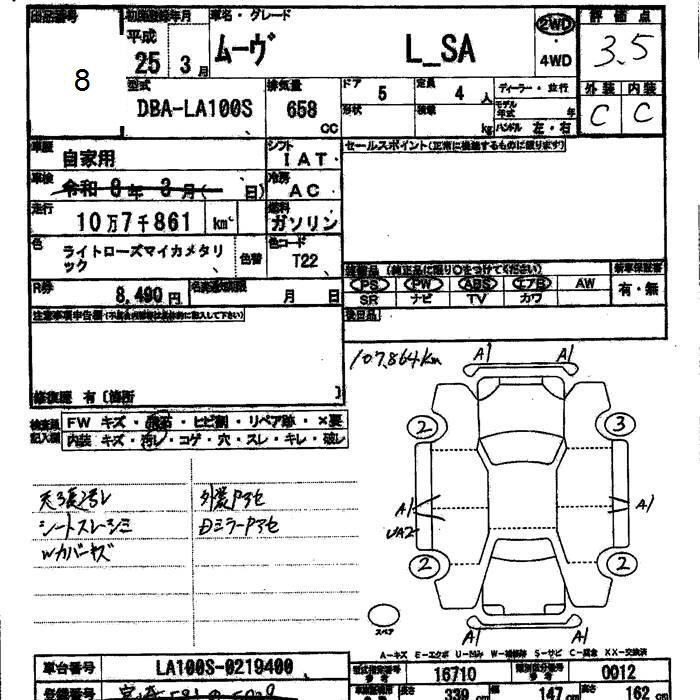 出品番号 初度登録年月 車名・グレード 2WD 評価点
8 平成 25 3月 ムーヴ L_SA ・4WD 3.5
外装 内装
C C
型式 排気量 ドア 定員 ディーラー・並行
DBA-LA100S 658 cc 5 4人
形状 積載 kg モデル年式 年
ハンドル 左・右
車歴 自家用 シフト IAT セールスポイント(正常に機能するものに限ります)
車検 令和 8年 3月( 日) 冷房 AC
走行 10万7千861 km 燃料 ガソリン
色 ライトローズマイカメタリック 色替 色コード T22
装備品(純正品に限り○をつけてください) 新車保証書
PS PW ABS エアB AW 有・無
SR ナビ TV カワ
R券 8,490円 名義変更期限 月 日
後日品
注意事項申告欄
修復歴 有〔箇所 〕
107,864km
検査員記入欄
FW キズ・飛石・ヒビ割・リペア跡・×要
内装 キズ・汚レ・コゲ・穴・スレ・キレ・破レ
A1 A1
2 3
A1 A1
UA2
2 2
A1 A1
外装アセ
シートスレ
Wカバーキズ
DミラーアセE
スペア
A-キズ E-エクボ U-凹ミ W-補修跡 S-サビ C-腐食 XX-交換済
車台番号 LA100S-0219400
型式指定番号 参考 16710 類別区分番号 参考 0012
登録番号
長さ 339 cm 幅 147 cm 高さ 162 cm